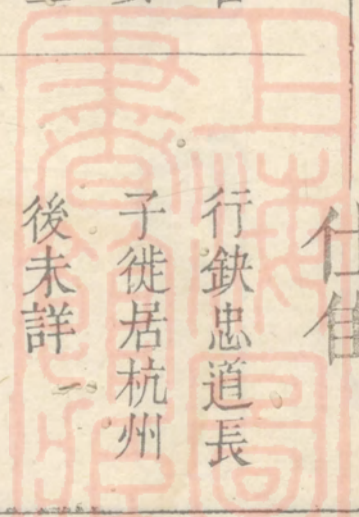 行鈌忠道長
子徙居杭州
後未詳